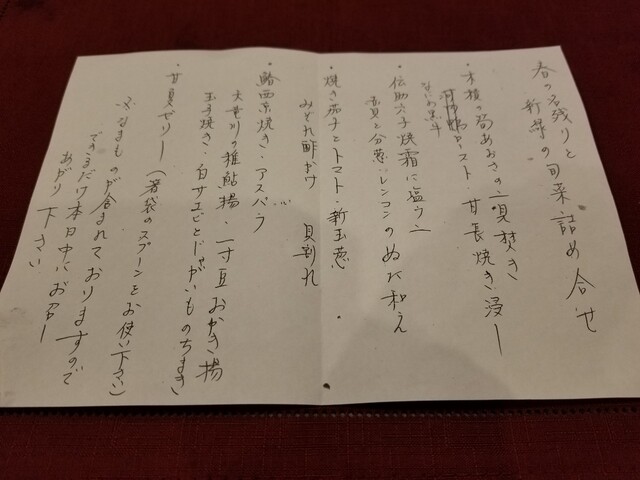 春の名残りと
新緑の旬菜詰め合せ
・木積の筍あおさの真焚き
なにわ黒牛
ロースト・甘長焼き浸し
・伝助穴子焼霜に塩ウニ
青見と分葱・レンコンのぬた和え
・焼き茄子とトマト・新玉葱
みぞれ酢がけ 貝割れ
・鰆西京焼き・アスパラ
天竜川の稚鮎揚・一寸豆おかき揚
玉子焼き・白サエビとじゃがいものちまき
・甘夏ゼリー(箸袋のスプーンをお使い下さい)
なまものが含まれておりますので
できるだけ本日中にお召し
あがり下さい